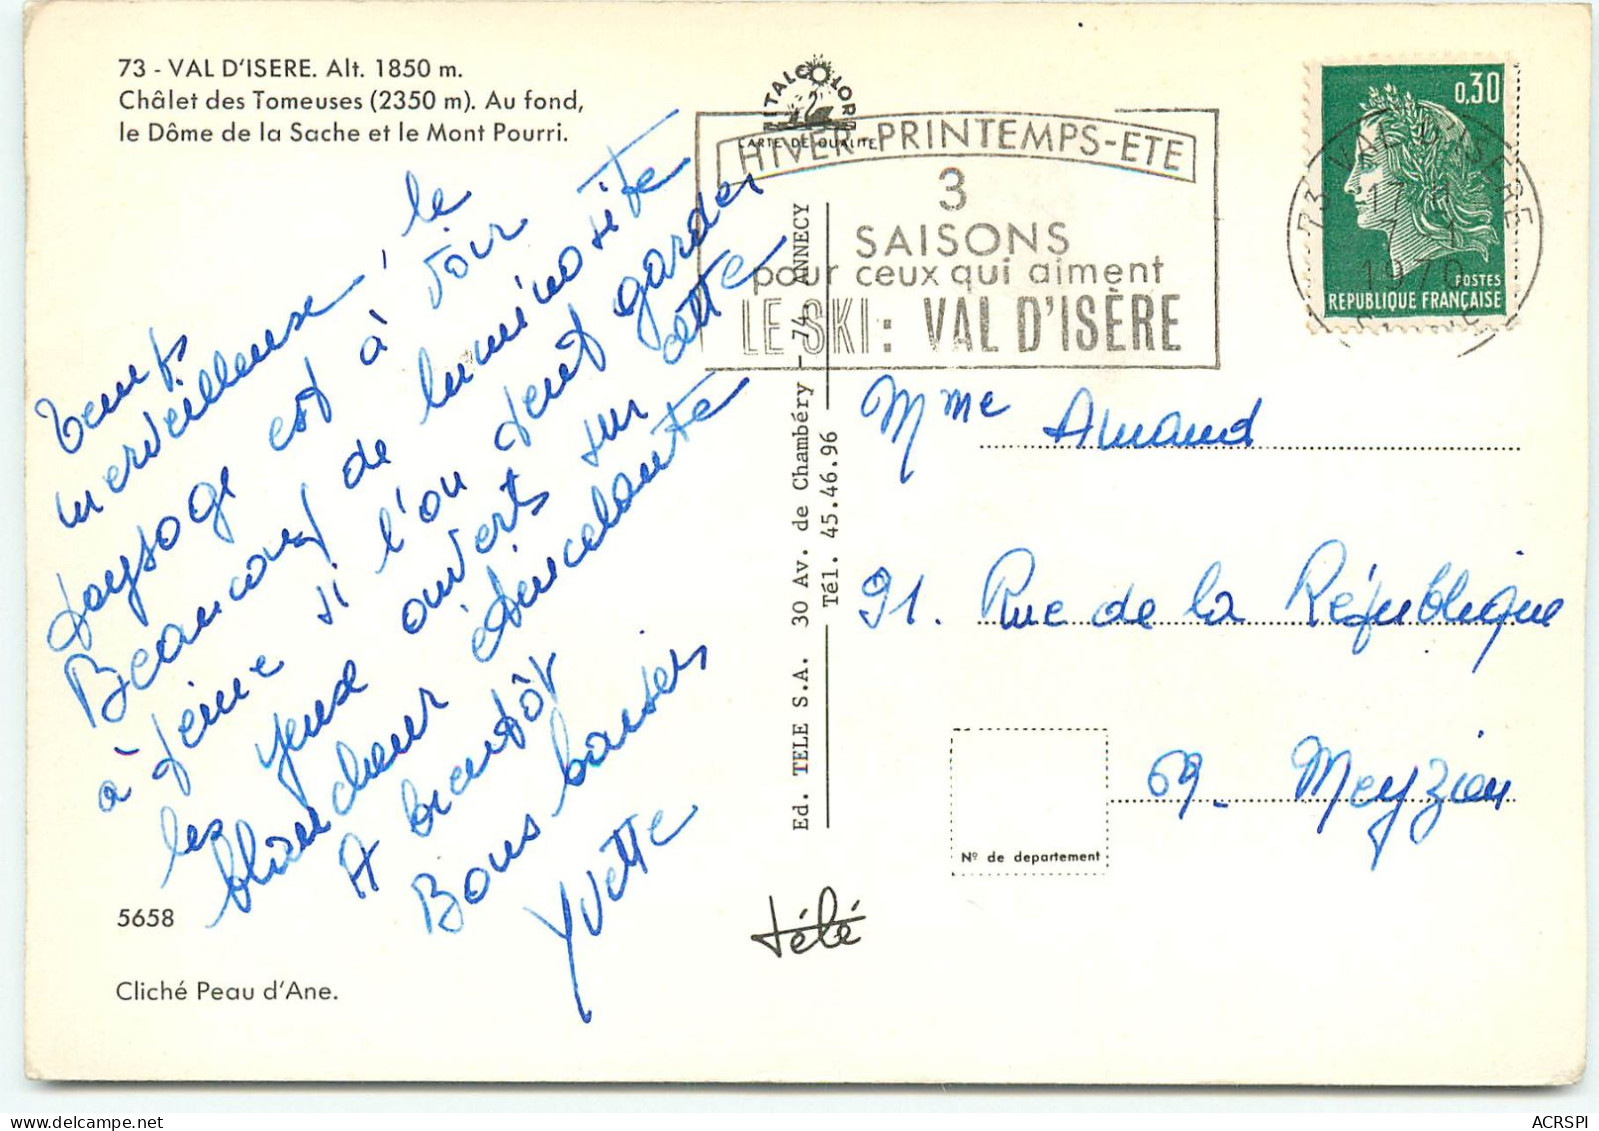 73 - VAL D'ISERE. Alt. 1850 m.
Châlet des Tomeuses (2350 m). Au fond,
le Dôme de la Sache et le Mont Pourri.
Temps
merveilleuse ! le
paysage est à voir
Beaucoup de luminosité
à peine si l'on peut garder
les yeux ouverts sur cette
blancheur étincelante
A bientôt
Bons baisers
Yvette
5658
Cliché Peau d'Ane.
ITALCOLOR
CARTE DE QUALITE
HIVER-PRINTEMPS-ETE
3
SAISONS
pour ceux qui aiment
LE SKI : VAL D'ISÈRE
73 VAL D'ISERE
1970
0,30
POSTES
REPUBLIQUE FRANÇAISE
Ed. TELE S.A. 30 Av. de Chambéry - 74 ANNECY
Tél. 45.46.96
Mme Amand
91. Rue de la République
69. Meyzieu
Nº de departement
télé
ACRSPI